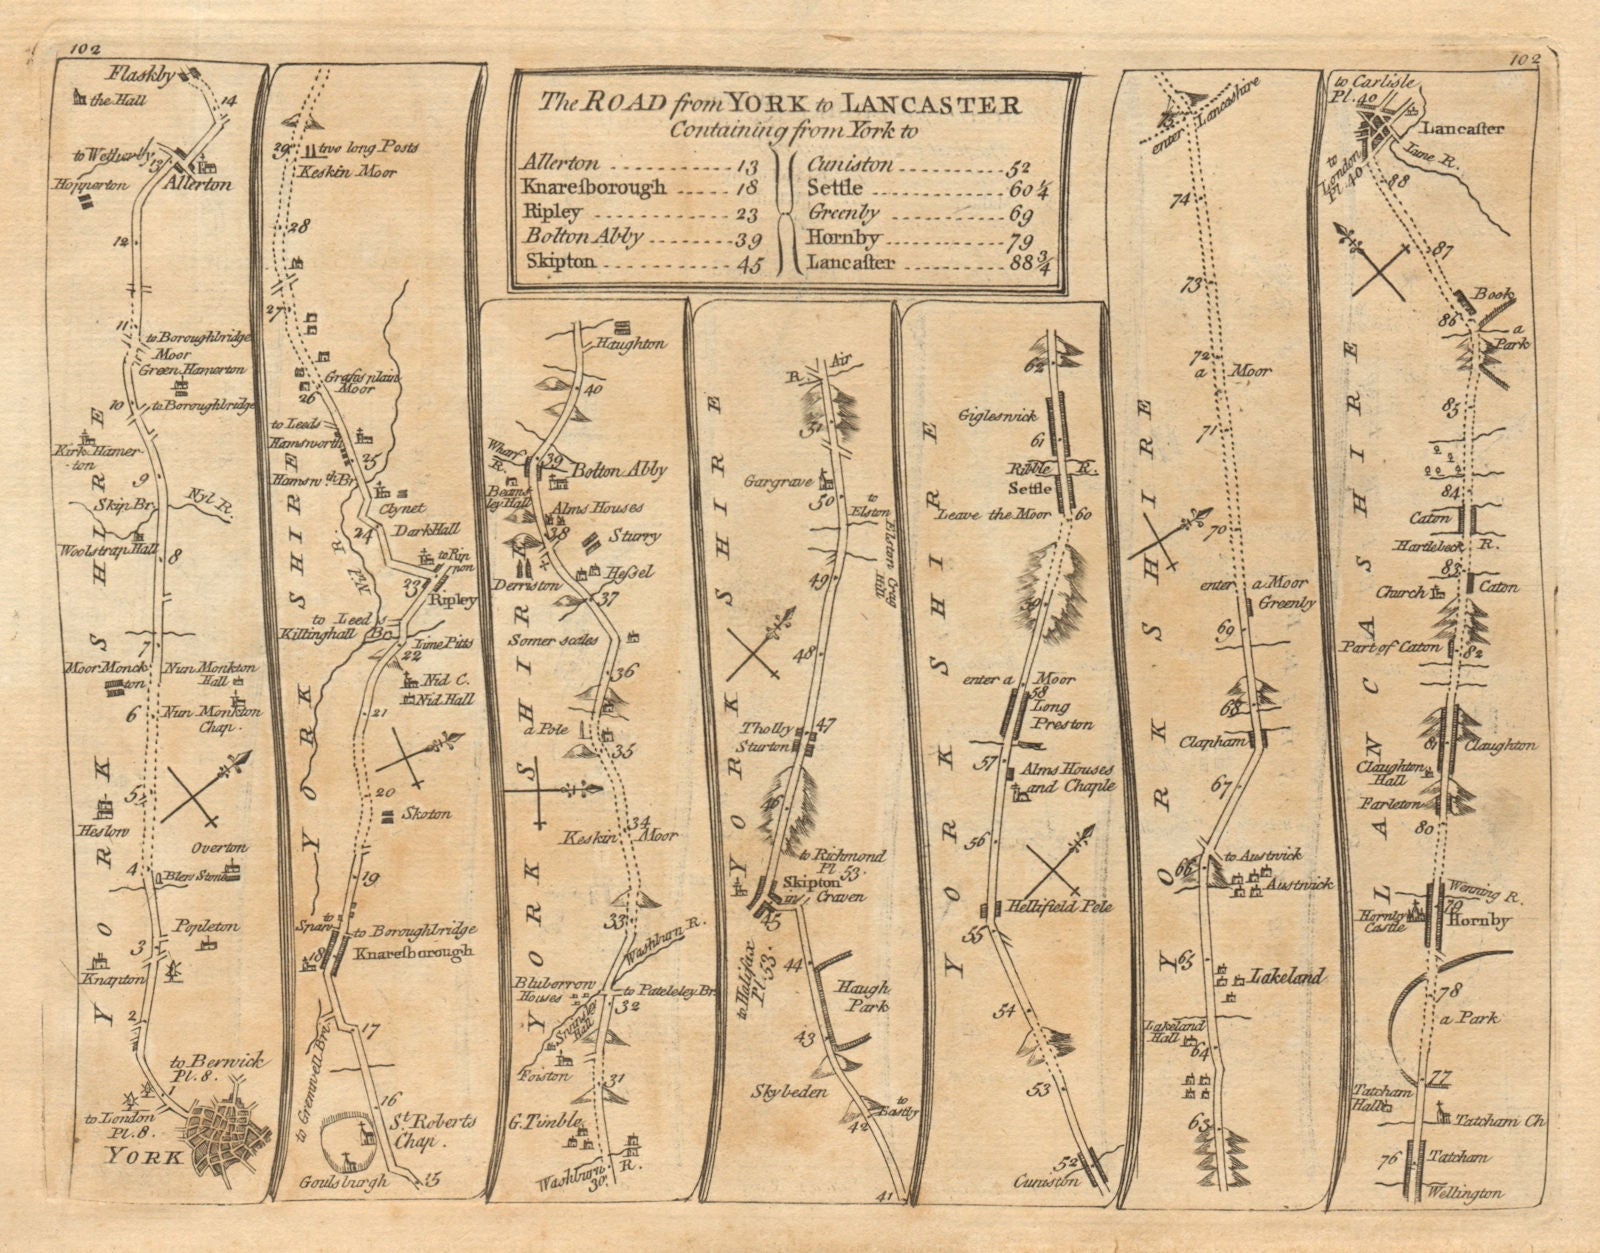 102
102
The ROAD from YORK to LANCASTER
Containing from York to
Allerton 13
Knaresborough 18
Ripley 23
Bolton Abby 39
Skipton 45
Cuniston 52
Settle 60¼
Greenby 69
Hornby 79
Lancaster 88¾
Flaskby
the Hall
14
to Wetherby
13
Hopperton
Allerton
12
11
to Boroughbridge
Moor
Green Hamerton
10
to Boroughbridge
Kirk Hamer-
ton
9
Skip Br.
Nyl R.
Woolstrap Hall
8
7
Moor Monck
ton
Nun Monkton
Hall
6
Nun Monkton
Chap.
5
Heslow
Overton
4
Blers Stone
Popleton
3
Knapton
2
to Berwick
Pl. 8.
1
to London
Pl. 8.
YORK
YORKSHIRE
29
two long Posts
Keskin Moor
28
27
Grassplain
Moor
26
to Leeds
Hamsworth
25
Hamsw.th Br.
Clynet
Dark Hall
24
Nyd R.
to Rip
non
23
Ripley
to Leeds
Killinghall Br.
Lime Pitts
22
Nid C.
Nid Hall
21
20
Skoton
19
to
Spaw
to Boroughbridge
18
Knaresborough
17
to Gremwell Br.
16
St. Roberts
Chap.
Goulsburgh
15
YORKSHIRE
Haughton
40
Wharf
R.
39
Bolton Abby
Beams
ley Hall
Alms Houses
38
Sturry
Derriston
Hessel
37
Somer scales
36
a Pole
35
34
Keskin Moor
33
Washburn R.
Bluborrow
Houses
to Pateley Br.
32
Foiston
31
G. Timble
Washburn R.
30
YORKSHIRE
R. Air
51
Gargrave
50
to
Elston
Elston Crag
Hill
49
48
Tholby
47
Sturton
46
to Richmond
Pl. 53.
Skipton
in Craven
45
to Halifax
Pl. 53.
44
Haugh
Park
43
Skybeden
to
Eastby
42
41
YORKSHIRE
62
Gigleswick
61
Ribble R.
Settle
Leave the Moor
60
59
enter a Moor
58
Long
Preston
57
Alms Houses
and Chaple
56
Hellifield Pele
55
54
53
52
Cuniston
YORKSHIRE
75
enter Lancashire
74
73
72
a Moor
71
70
enter a Moor
Greenby
69
68
Clapham
67
66
to Austwick
Austwick
65
Lakeland
Lakeland
Hall
64
63
YORKSHIRE
to Carlisle
Pl. 40
Lancaster
to
London
Pl. 40
Lune R.
88
87
Book
86
a
Park
85
84
Caton
Hartlebeck R.
83
Church
Caton
Part of Caton
82
81
Claughton
Claughton
Hall
Farleton
80
Wenning R.
79
Hornby
Castle
Hornby
78
a Park
77
Tatcham
Hall
Tatcham Ch
76
Tatcham
Wellington
LANCASHIRE